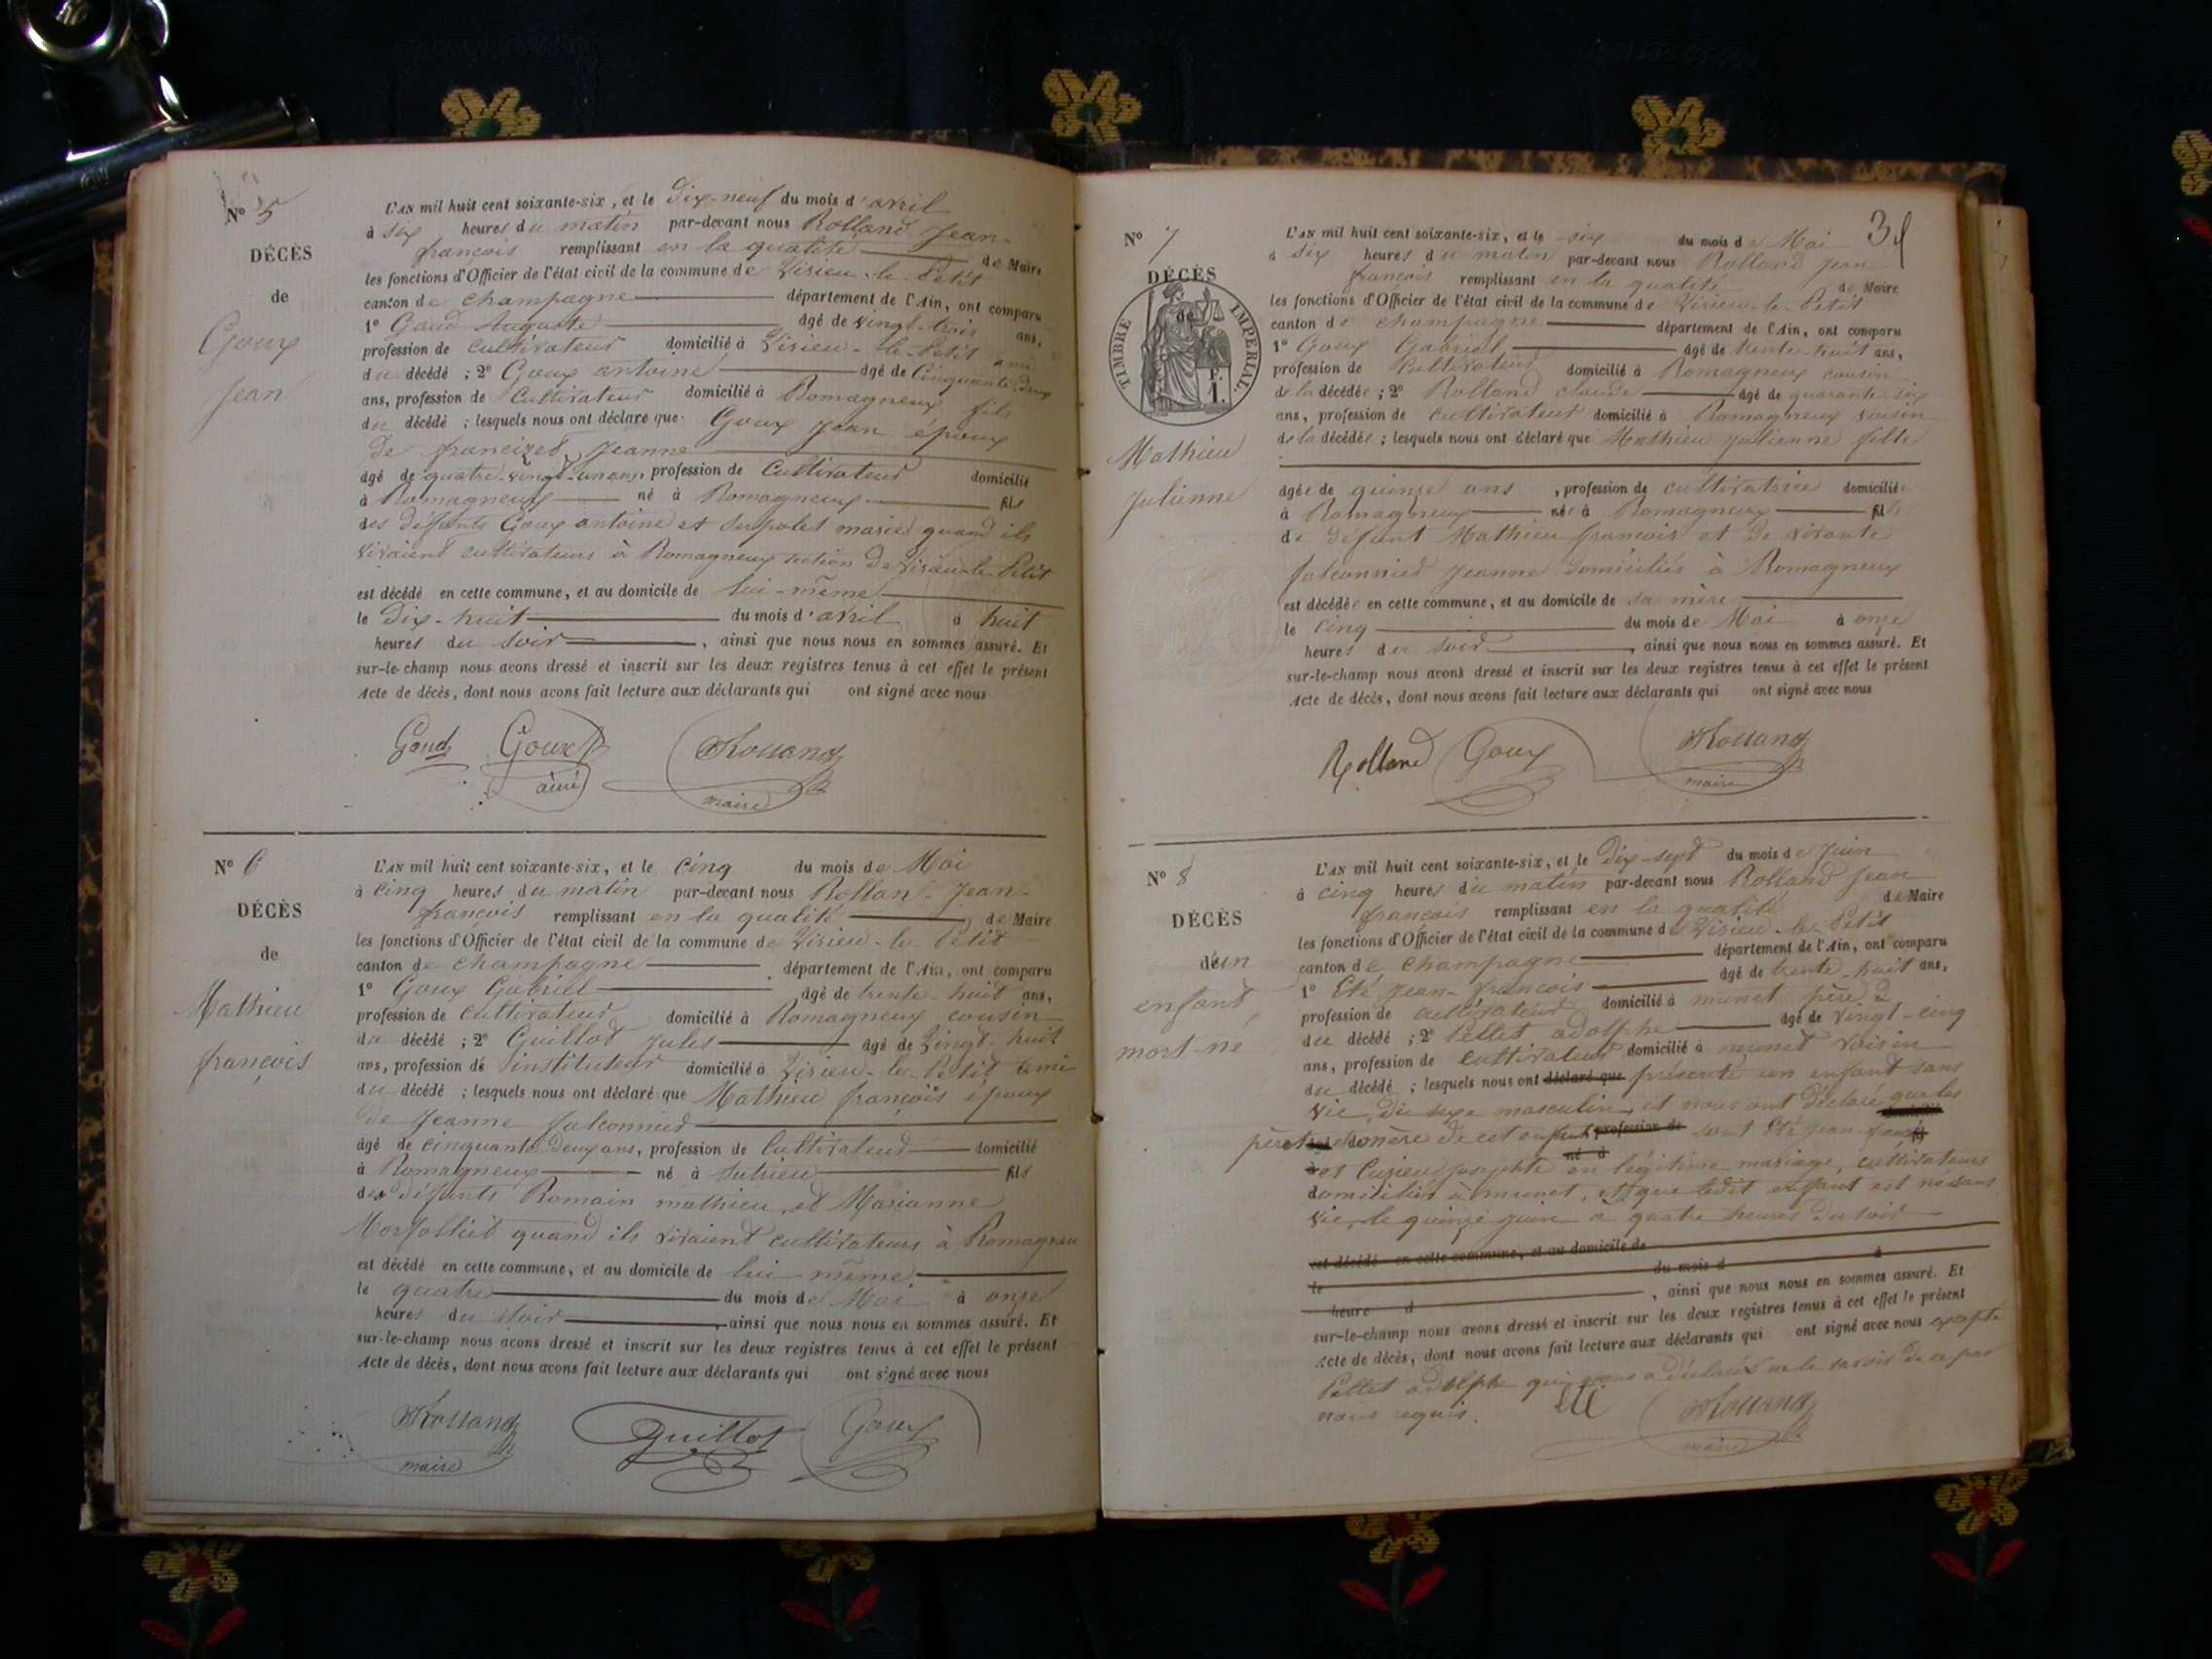 N° 5
DÉCÈS
de
Goux
Jean
L'AN mil huit cent soixante-six, et le Dix-neuf du mois d'avril
à six heures du matin par-devant nous Rolland Jean-
françois remplissant en la qualité de Maire
les fonctions d'Officier de l'état civil de la commune de Virieu-le-Petit
canton de Champagne département de l'Ain, ont comparu
1° Gaud Auguste âgé de vingt-trois ans,
profession de cultivateur domicilié à Virieu-le-Petit ami
du décédé ; 2° Goux antoine âgé de Cinquante-deux
ans, profession de Cultivateur domicilié à Romagneux fils
du décédé ; lesquels nous ont déclaré que Goux Jean époux
de Jeanne
âgé de quatre-vingt-un ans, profession de Cultivateur domicilié
à Romagneux né à Romagneux fils
des défunts Goux antoine et marie quand ils
vivaient cultivateurs à Romagneux section de Virieu-le-Petit
est décédé en cette commune, et au domicile de lui-même
le Dix-huit du mois d'avril à huit
heures du soir, ainsi que nous nous en sommes assuré. Et
sur-le-champ nous avons dressé et inscrit sur les deux registres tenus à cet effet le présent
Acte de décès, dont nous avons fait lecture aux déclarants qui ont signé avec nous
Gaud Goux Rolland
ainé maire
N° 6
DÉCÈS
de
Mathieu
françois
L'AN mil huit cent soixante-six, et le cinq du mois de Mai
à cinq heures du matin par-devant nous Rolland Jean-
françois remplissant en la qualité de Maire
les fonctions d'Officier de l'état civil de la commune de Virieu-le-Petit
canton de Champagne département de l'Ain, ont comparu
1° Goux Gabriel âgé de trente-huit ans,
profession de cultivateur domicilié à Romagneux cousin
du décédé ; 2° Guillot Jules âgé de Vingt-huit
ans, profession de instituteur domicilié à Virieu-le-Petit ami
du décédé ; lesquels nous ont déclaré que Mathieu françois époux
de Jeanne falconnier
âgé de cinquante-deux ans, profession de Cultivateur domicilié
à Romagneux né à Sutrieu fils
des défunts Romain mathieu, et Marianne
quand ils vivaient cultivateurs à Romagneux
est décédé en cette commune, et au domicile de lui-même
le quatre du mois de Mai à onze
heures du soir, ainsi que nous nous en sommes assuré. Et
sur-le-champ nous avons dressé et inscrit sur les deux registres tenus à cet effet le présent
Acte de décès, dont nous avons fait lecture aux déclarants qui ont signé avec nous
Rolland Guillot Goux
maire
3
N° 7
DÉCÈS
de
TIMBRE IMPÉRIAL.
F.
1.
Mathieu
Julienne
L'AN mil huit cent soixante-six, et le six du mois de Mai
à six heures du matin par-devant nous Rolland Jean
françois remplissant en la qualité de Maire
les fonctions d'Officier de l'état civil de la commune de Virieu-le-Petit
canton de Champagne département de l'Ain, ont comparu
1° Goux Gabriel âgé de trente-huit ans,
profession de Cultivateur domicilié à Romagneux cousin
de la décédée ; 2° Rolland claude âgé de quarante-six
ans, profession de cultivateur domicilié à Romagneux voisin
de la décédée ; lesquels nous ont déclaré que Mathieu Julienne fille
âgée de quinze ans, profession de cultivatrice domiciliée
à Romagneux née à Romagneux fille
de défunt Mathieu françois et de vivante
falconnier Jeanne domiciliés à Romagneux
est décédée en cette commune, et au domicile de sa mère
le cinq du mois de Mai à onze
heures du soir, ainsi que nous nous en sommes assuré. Et
sur-le-champ nous avons dressé et inscrit sur les deux registres tenus à cet effet le présent
Acte de décès, dont nous avons fait lecture aux déclarants qui ont signé avec nous
Rolland Goux Rolland
maire
N° 8
DÉCÈS
d'un
enfant
mort-né
L'AN mil huit cent soixante-six, et le Dix-sept du mois de Juin
à cinq heures du matin par-devant nous Rolland Jean
françois remplissant en la qualité de Maire
les fonctions d'Officier de l'état civil de la commune de Virieu-le-Petit
canton de Champagne département de l'Ain, ont comparu
1° Eté Jean-françois âgé de trente-huit ans,
profession de cultivateur domicilié à munet père
du décédé ; 2° Pellet adolphe âgé de vingt-cinq
ans, profession de cultivateur domicilié à munet voisin
du décédé ; lesquels nous ont déclaré que présenté un enfant sans
vie, du sexe masculin, et nous ont déclaré que les
père et mère de cet enfant profession de sont Eté Jean-françois
né à
et josephte en légitime mariage, cultivateurs
domiciliés à munet, et que ledit enfant est né sans
vie, le quinze juin à quatre heures du soir
est décédé en cette commune, et au domicile de
le du mois d à
heure d, ainsi que nous nous en sommes assuré. Et
sur-le-champ nous avons dressé et inscrit sur les deux registres tenus à cet effet le présent
Acte de décès, dont nous avons fait lecture aux déclarants qui ont signé avec nous excepté
Pellet adolphe qui nous a déclaré ne le savoir de ce par
nous requis. Eté Rolland
maire